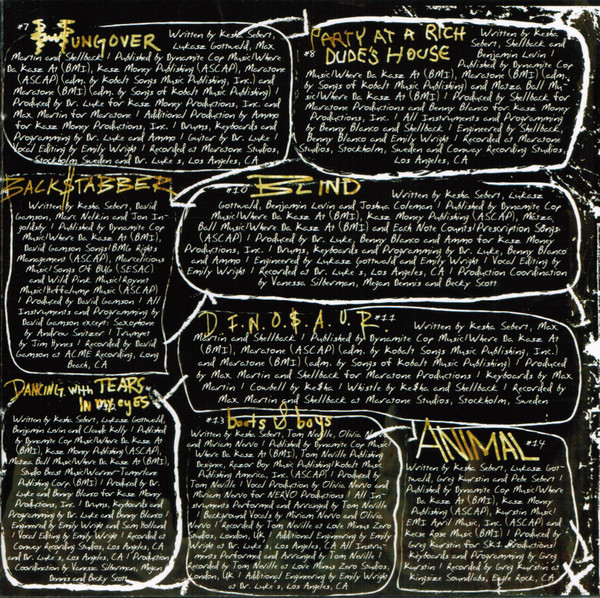 #7 HUNGOVER
Written by Kesha Sebert,
Lukasz Gottwald, Max
Martin and Shellback | Published by Dynamite Cop Music/Where
Da Kasz At (BMI), Kasz Money Publishing (ASCAP), Maratone
(ASCAP) (adm. by Kobalt Songs Music Publishing, Inc.) and
Maratone (BMI) (adm. by Songs of Kobalt Music Publishing) |
Produced by Dr. Luke for Kasz Money Productions, Inc. and
Max Martin for Maratone | Additional Production by Ammo
for Kasz Money Productions, Inc. | Drums, Keyboards and
Programming by Dr. Luke and Ammo | Guitar by Dr. Luke |
Vocal Editing by Emily Wright | Recorded at Maratone Studios,
Stockholm Sweden and Dr. Luke's, Los Angeles, CA
#8 PARTY AT A RICH
DUDE'S HOUSE
Written by Kesha
Sebert, Shellback and
Benjamin Levin |
Published by Dynamite Cop
Music/Where Da Kasz At (BMI), Maratone (BMI) (adm.
by Songs of Kobalt Music Publishing) and Matza Ball Mu-
sic/Where Da Kasz At (BMI) | Produced by Shellback for
Maratone Productions and Benny Blanco for Kasz Money
Productions, Inc. | All Instruments and Programming
by Benny Blanco and Shellback | Engineered by Shellback,
Benny Blanco and Emily Wright | Recorded at Maratone
Studios, Stockholm, Sweden and Conway Recording Studios,
Los Angeles, CA
BACK$TABBER
Written by Kesha Sebert, David
Gamson, Marc Nelkin and Jon In-
goldsby | Published by Dynamite Cop
Music/Where Da Kasz At (BMI),
David Gamson Songs/BMG Rights
Management (ASCAP), Marcelicious
Music/Songs Of BUG (SESAC)
and Wild Pink Music/Roynet
Music/Hoffalump Music (ASCAP)
| Produced by David Gamson | All
Instruments and Programming by
David Gamson except: Saxophone
by Andrew Snitzer | Trumpet
by Jim Hynes | Recorded by David
Gamson at ACME Recording, Long
Beach, CA
#10 BLIND
Written by Kesha Sebert, Lukasz
Gottwald, Benjamin Levin and Joshua Coleman | Published by Dynamite Cop
Music/Where Da Kasz At (BMI), Kasz Money Publishing (ASCAP), Matza
Ball Music/Where Da Kasz At (BMI) and Each Note Counts/Prescription Songs
(ASCAP) | Produced by Dr. Luke, Benny Blanco and Ammo for Kasz Money
Productions, Inc. | Drums, Keyboards and Programming by Dr. Luke, Benny Blanco
and Ammo | Engineered by Lukasz Gottwald and Emily Wright | Vocal Editing by
Emily Wright | Recorded at Dr. Luke's, Los Angeles, CA | Production Coordination
by Vanessa Silberman, Megan Dennis and Becky Scott
D.I.N.O.$.A.U.R #11
Written by Kesha Sebert, Max
Martin and Shellback | Published by Dynamite Cop Music/Where Da Kasz At
(BMI), Maratone (ASCAP) (adm. by Kobalt Songs Music Publishing, Inc.)
and Maratone (BMI) (adm. by Songs of Kobalt Music Publishing) | Produced
by Max Martin and Shellback for Maratone Productions | Keyboards by Max
Martin | Cowbell by Ke$ha | Whistle by Ke$ha and Shellback | Recorded by
Max Martin and Shellback at Maratone Studios, Stockholm, Sweden
DANCING with TEARS
IN my eyes
Written by Kesha Sebert, Lukasz Gottwald,
Benjamin Levin and Claude Kelly | Published
by Dynamite Cop Music/Where Da Kasz At
(BMI), Kasz Money Publishing (ASCAP),
Matza Ball Music/Where Da Kasz At (BMI),
Studio Beast Music/Warner-Tamerlane
Publishing Corp. (BMI) | Produced by Dr.
Luke and Benny Blanco for Kasz Money
Productions, Inc. | Drums, Keyboards and
Programming by Dr. Luke and Benny Blanco |
Engineered by Emily Wright and Sam Holland
| Vocal Editing by Emily Wright | Recorded at
Conway Recording Studios, Los Angeles, CA
and Dr. Luke's, Los Angeles, CA | Production
Coordination by Vanessa Silberman, Megan
Dennis and Becky Scott
#13 boots & boys
Written by Kesha Sebert, Tom Neville, Olivia Nervo
and Miriam Nervo | Published by Dynamite Cop Music/
Where Da Kasz At (BMI), Tom Neville Publishing
Designee, Razor Boy Music Publishing/Kobalt Music
Publishing America, Inc. (ASCAP) | Produced by
Tom Neville | Vocal Production by Olivia Nervo and
Miriam Nervo for NERVO Productions | All In-
struments Performed and Arranged by Tom Neville
| Background Vocals by Miriam Nervo and Olivia
Nervo | Recorded by Tom Neville at Love Minus Zero
Studios, London, UK | Additional Engineering by Emily
Wright at Dr. Luke's, Los Angeles, CA All Instru-
ments Performed and Arranged by Tom Neville |
Recorded by Tom Neville at Love Minus Zero Studios,
London, UK | Additional Engineering by Emily Wright
at Dr. Luke's, Los Angeles, CA
ANIMAL #14
Written by Kesha Sebert, Lukasz Gott-
wald, Greg Kurstin and Pebe Sebert |
Published by Dynamite Cop Music/Where
Da Kasz At (BMI), Kasz Money
Publishing (ASCAP), Kurstin Music/
EMI April Music, Inc. (ASCAP) and
Kecse Rose Music (BMI) | Produced by
Greg Kurstin for Sk1 Productions |
Keyboards and Programming by Greg
Kurstin | Recorded by Greg Kurstin at
Kingsize Soundlabs, Eagle Rock, CA